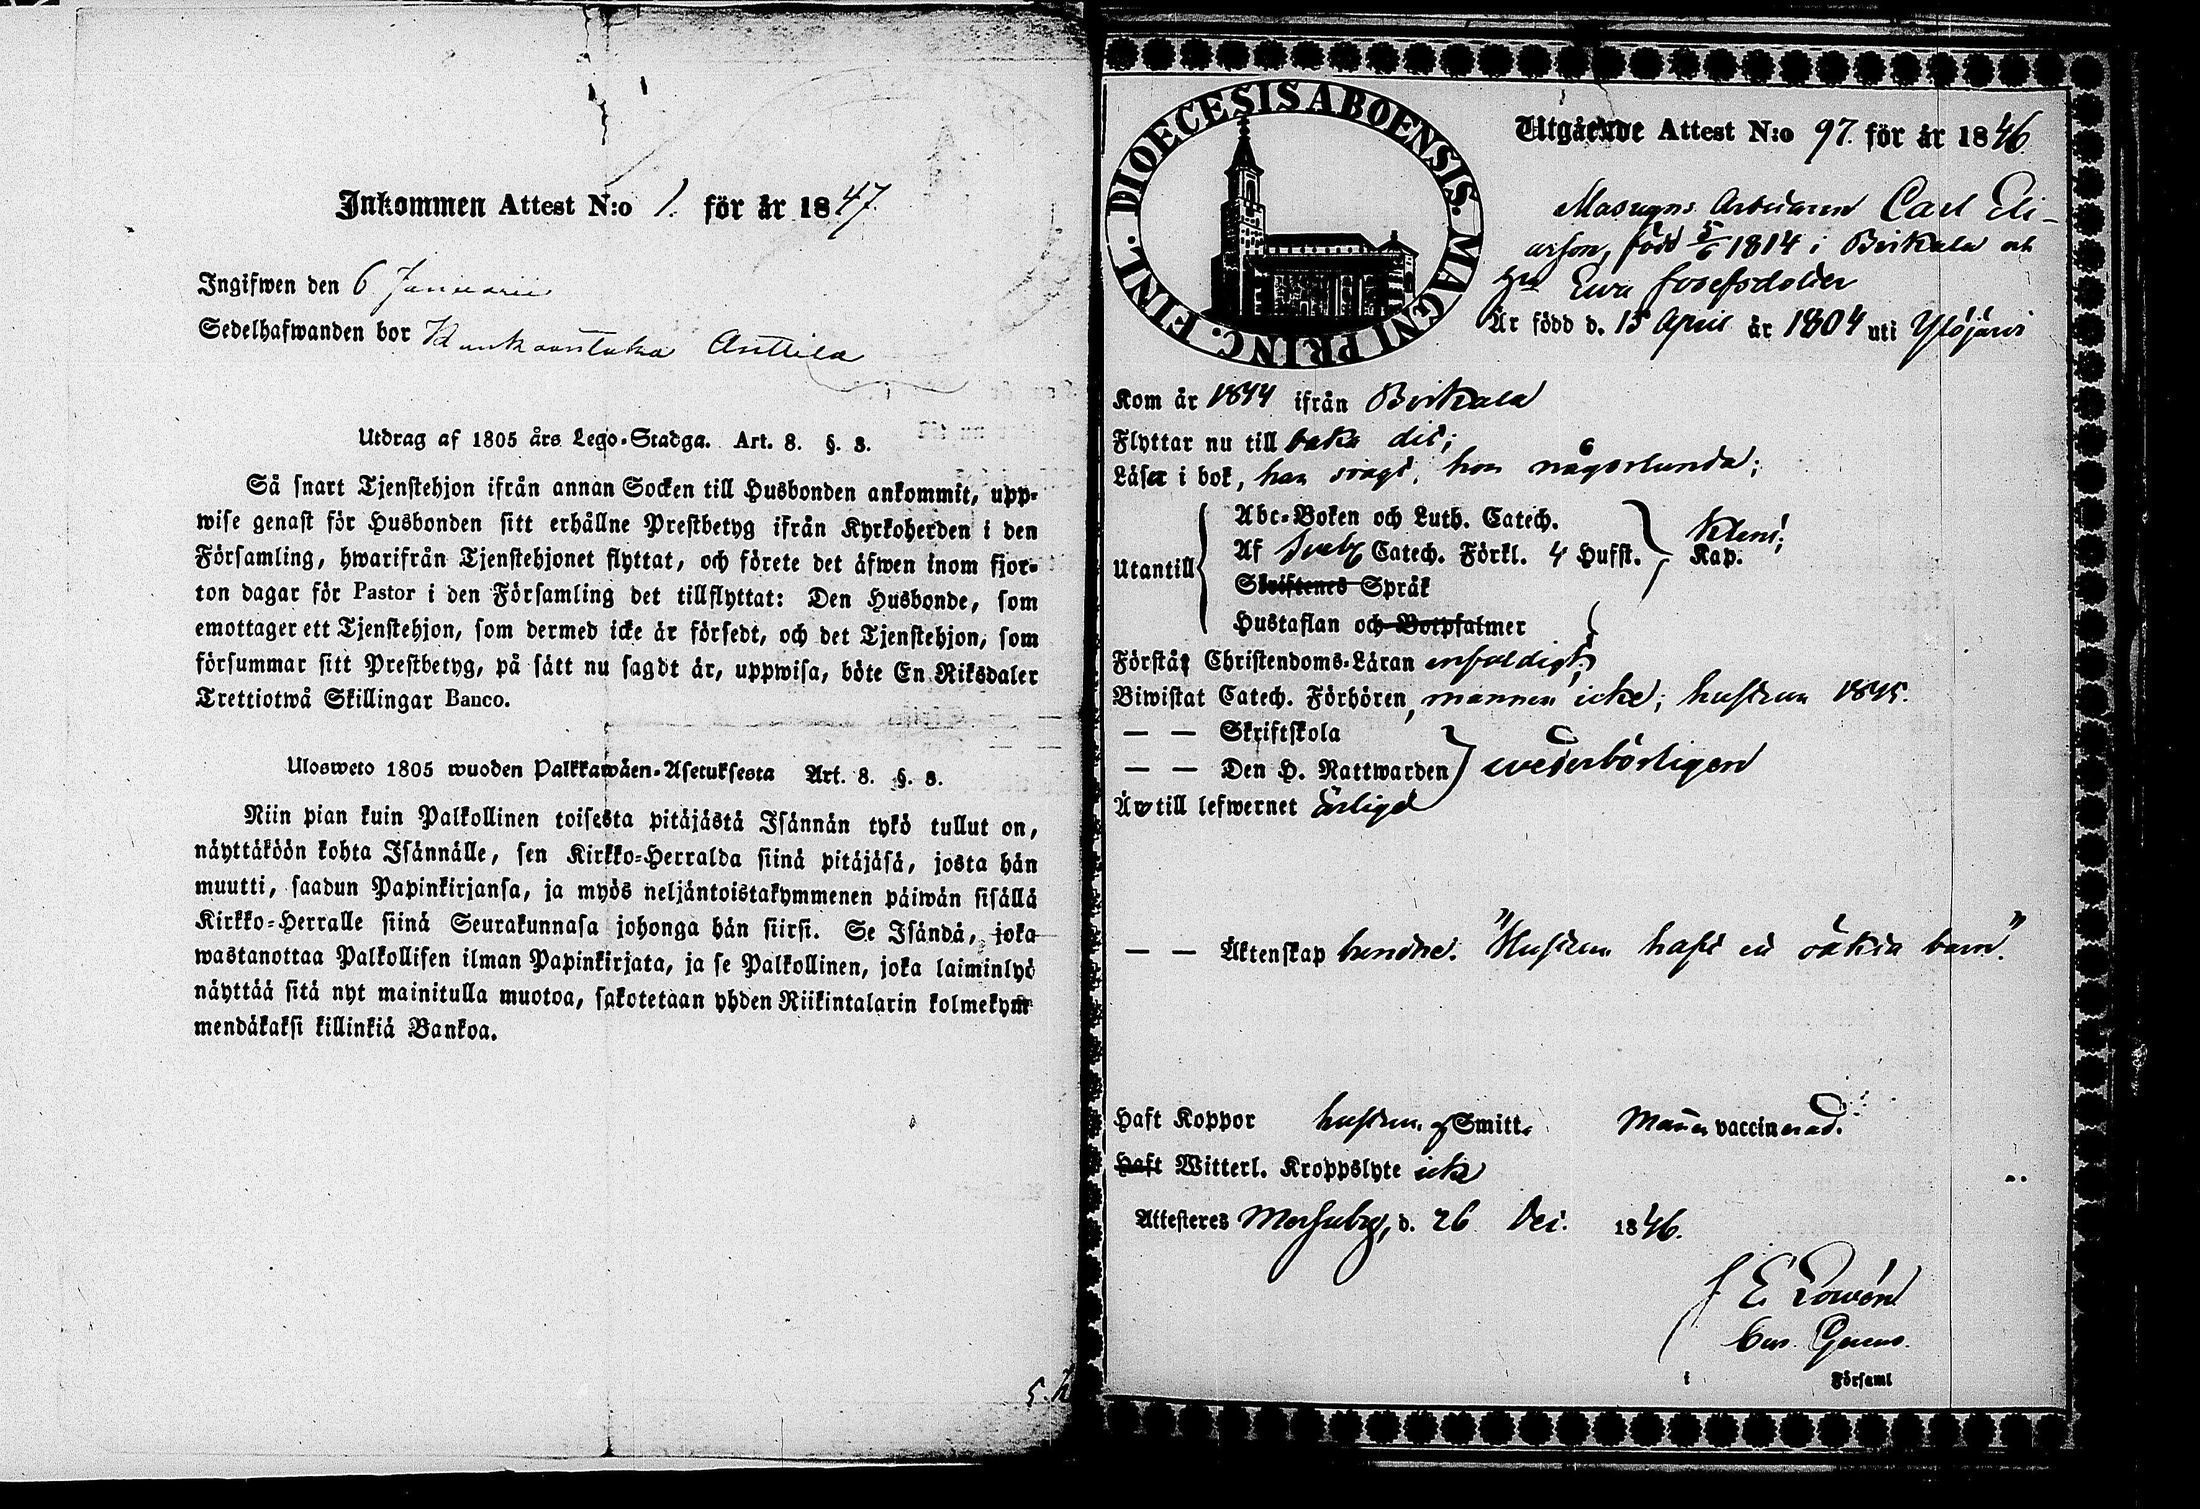 Inkommen Attest N:o 1. för år 1847.
Ingifwen den 6 Januarii
Sedelhafwanden bor Anttila
Utdrag af 1805 års Lego-Stadga. Art. 8. §. 3.
Så snart Tjenstehjon ifrån annan Socken till Husbonden ankommit, upp-
wise genast för Husbonden sitt erhållne Prestbetyg ifrån Kyrkoherden i den
Församling, hwarifrån Tjenstehjonet flyttat, och förete det äfwen inom fjor-
ton dagar för Pastor i den Församling det tillflyttat: Den Husbonde, som
emottager ett Tjenstehjon, som dermed icke är försedt, och det Tjenstehjon, som
försummar sitt Prestbetyg, på sätt nu sagdt är, uppwisa, böte En Riksdaler
Trettiotwå Skillingar Banco.
Ulosweto 1805 wuoden Palkkawäen-Asetuksesta Art. 8. §. 3.
Niin pian kuin Palkollinen toisesta pitäjästä Isännän tykö tullut on,
näyttäköön kohta Isännälle, sen Kirkko-Herralda siinä pitäjäsä, josta hän
muutti, saadun Papinkirjansa, ja myös neljäntoistakymmenen päiwän sisällä
Kirkko-Herralle siinä Seurakunnasa johonga hän siirsi. Se Isändä, joka
wastanottaa Palkollisen ilman Papinkirjata, ja se Palkollinen, joka laiminlyö
näyttää sitä nyt mainitulla muotoa, sakotetaan yhden Riikintalarin kolmekym
mendäkaksi killinkiä Bankoa.
DIOECESIS ABOENSIS. MAGNI PRINC. FINL.
Utgående Attest N:o 97. för år 1846.
Masugns Arbetaren Carl Eli-
asson, född 5/6 1814 i Birkala och
Hu Ewa Josefsdotter
Är född d. 15 April år 1804 uti Ylöjärvi
Kom år 1844 ifrån Birkala
Flyttar nu till baka dit;
Läser i bok, han svagt, hon någorlunda;
Utantill
Abc-Boken och Luth. Catech.
Af Sveb. Catech. Förkl. 4 Hufst. Kap.
Skriftenes Språk
Hustaflan och Botpsalmer
Förstår Christendoms-Läran enfaldigt;
Biwistat Catech. Förhören, mannen icke; hustrun 1845.
— — Skriftskola
— — Den H. Nattwarden wederbörligen
Är till lefwernet ärligt
— — Äktenskap bundne. "Hustrun haft ett oäkta barn".
Haft Koppor hustrun Smitt. Mannen vaccinerad.
Haft Witterl. Kroppslyte icke
Attesteres d. 26 Dec. 1846.
i Församl